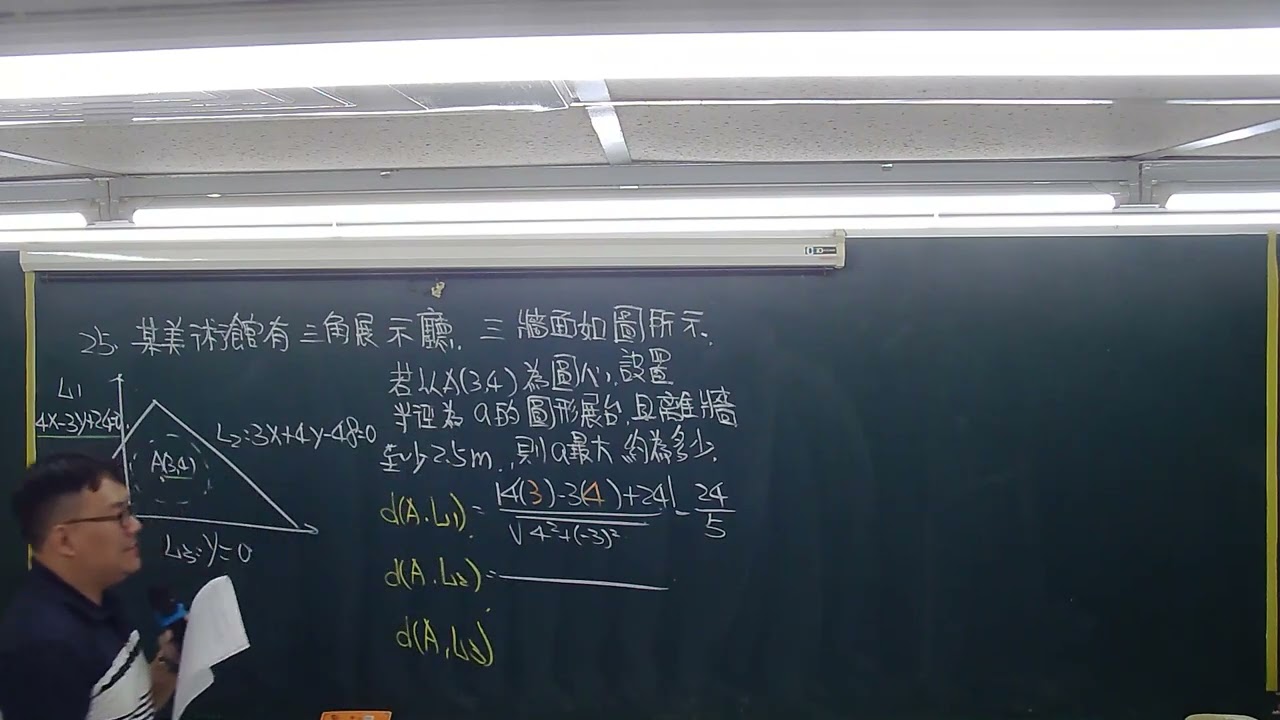 25. 某美術館有三角展示廳, 三牆面如圖所示.
若以A(3,4)為圓心, 設置
半徑為 a的圓形展台, 且離牆
至少2.5m, 則a最大約為多少.
L1
4x-3y+24=0
L2:3x+4y-48=0
A(3,4)
L3:y=0
d(A.L1) = |4(3)-3(4)+24| / √4²+(-3)² = 24/5
d(A.L2) =
d(A,L3)